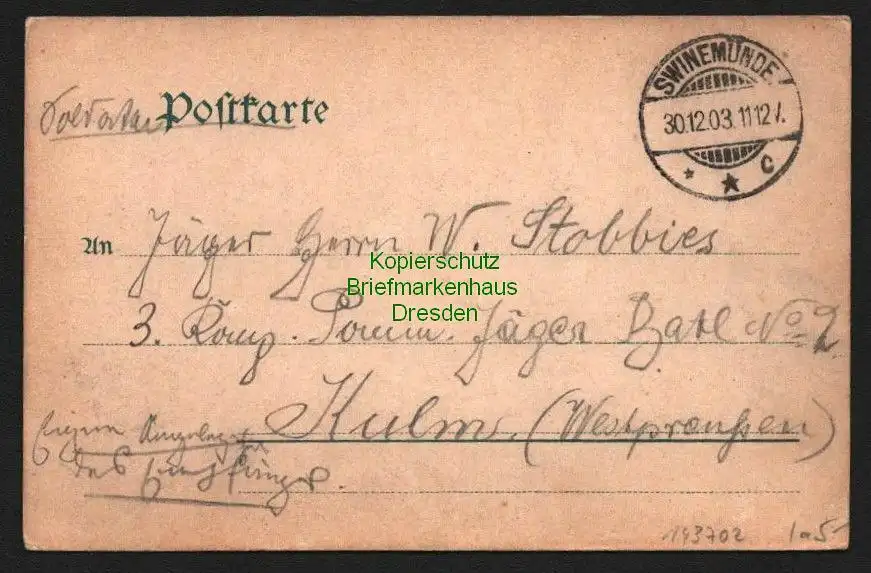 SWINEMÜNDE
30.12.03. 11-12 V.
* * C
Soldaten Postkarte
An Jäger Herrn W. Stobbies
Kopierschutz
Briefmarkenhaus
Dresden
3. Komp. Pomm. Jäger Batl No 2
Kulm. (Westpreußen)
Eigene Angelegenheit
des Empfängers.
193702 1a5